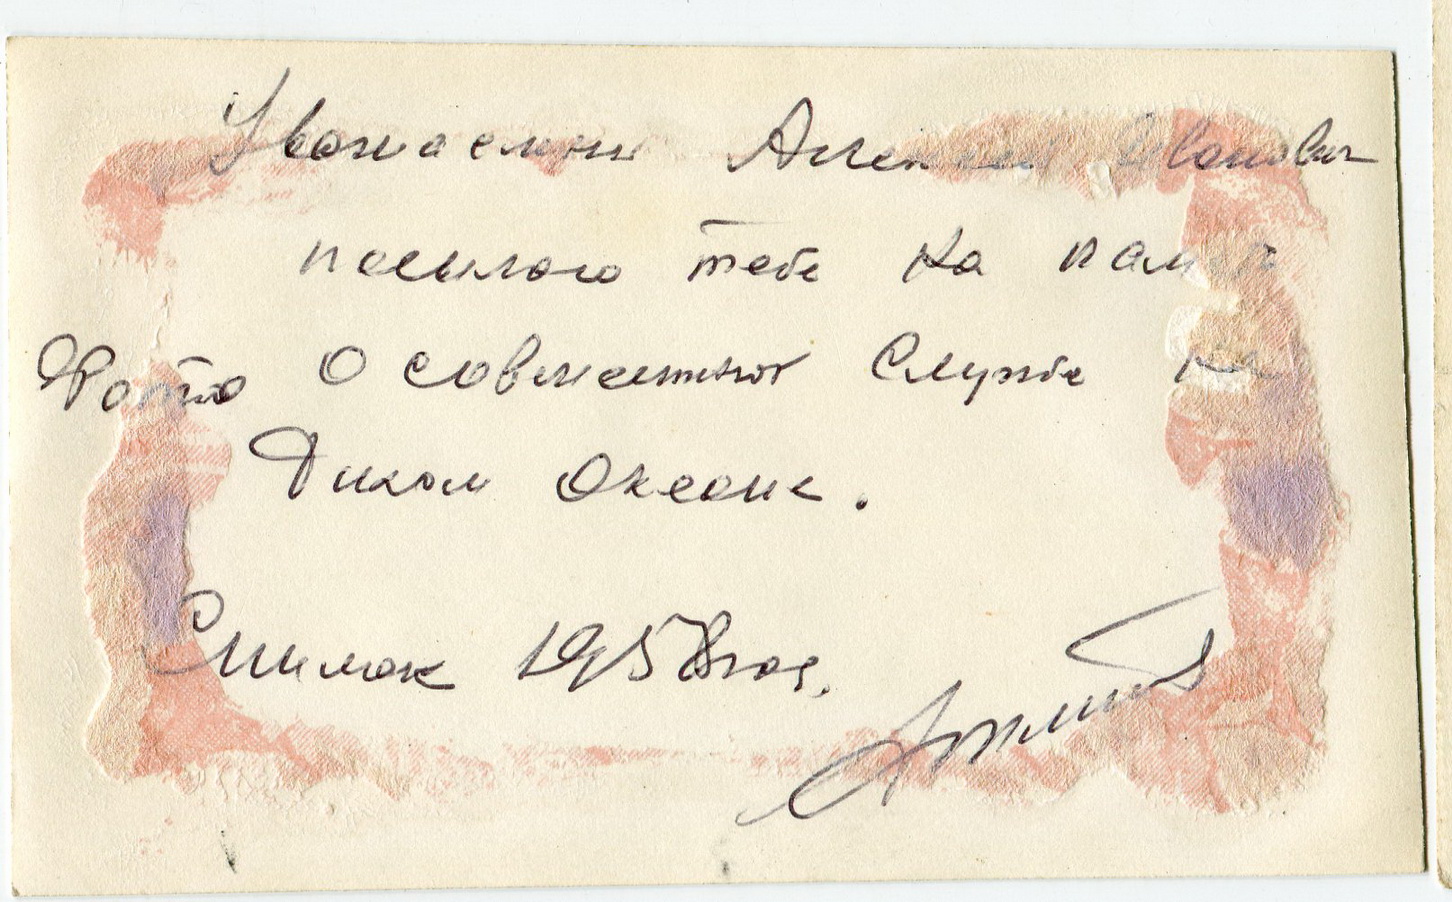 Уважаемый Алексей Иванович
посылаю тебе на память
Фото о совместной службе на
Тихом Океане.
Снимок 1958 год.